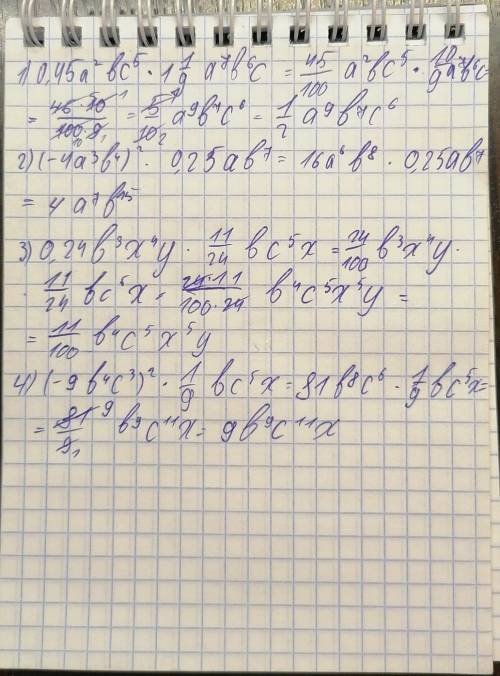 1) 0,45a²bc⁵ · 1 1/9 a⁷b⁶c = 45/100 a²bc⁵ · 10/9 a⁷b⁶c
= 45·10/100·9 = 5/10 a⁹b⁷c⁶ = 1/2 a⁹b⁷c⁶
2) (-4a³b⁴)² · 0,25ab⁷ = 16a⁶b⁸ · 0,25ab⁷
= 4a⁷b¹⁵
3) 0,24b³x⁴y · 11/24 bc⁵x = 24/100 b³x⁴y ·
· 11/24 bc⁵x = 24·11/100·24 b⁴c⁵x⁵y =
= 11/100 b⁴c⁵x⁵y
4) (-9b⁴c³)² · 1/9 bc⁵x = 81b⁸c⁶ · 1/9 bc⁵x =
= 81/9 b⁹c¹¹x = 9b⁹c¹¹x